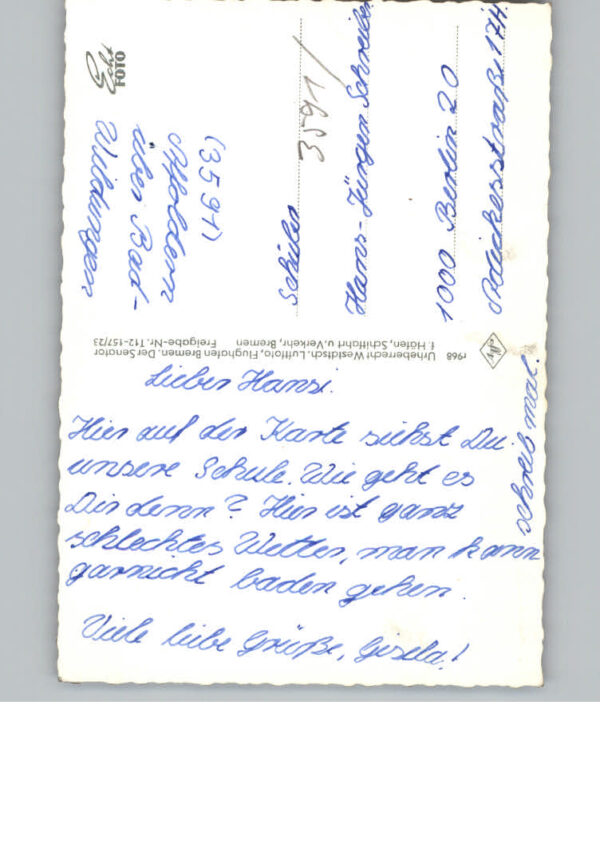 Lieber Hansi.
Hier auf der Karte siehst Du
unsere Schule. Wie geht es
Dir denn? Hier ist ganz
schlechtes Wetter, man kann
garnicht baden gehen.
Viele liebe Grüße, Gisela!
schreib mal.
Echt
FOTO
(3591)
Affoldern
über Bad-
Wildungen
3591/
Schüler
Hans-Jürgen Schreiber
1000 Berlin 20
Adickesstraße 174.
r968 Urheberrecht Westdtsch. Luftfoto, Flughafen Bremen. Der Senator
f. Häfen, Schiffahrt u. Verkehr, Bremen Freigabe-Nr. T12-157/23